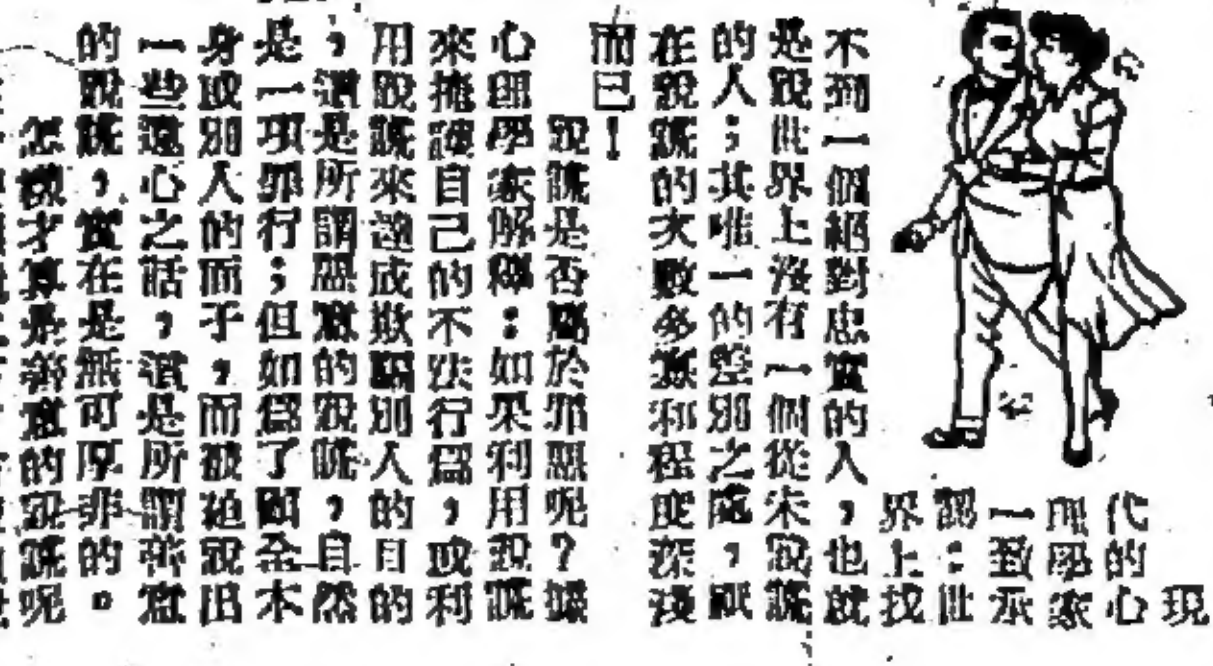 現
代的心
理學家
一致承
認：世
界上找
不到一個絕對忠實的人，也就
是說世界上沒有一個從未說謊
的人；其唯一的差別之處，祇
在說謊的次數多寡和程度深淺
而已！
說謊是否屬於邪惡呢？據
心理學家解釋：如果利用說謊
來掩護自己的不法行爲，或利
用說謊來達成欺騙別人的目的
，這是所謂惡意的說謊，自然
是一項罪行；但如爲了顧全本
身或別人的面子，而被迫說出
一些違心之話，這是所謂善意
的說謊，實在是無可厚非的。
怎樣才算是善意的說謊呢